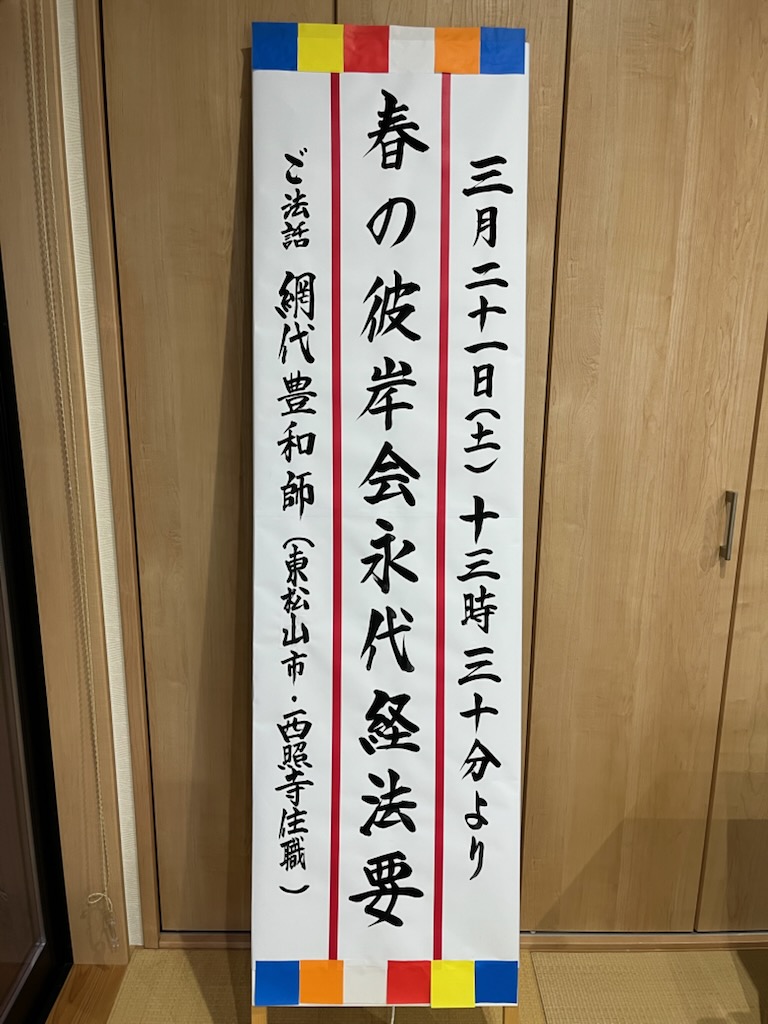 三月二十一日（土）十三時三十分より
春の彼岸会永代経法要
ご法話 網代豊和師（東松山市・西照寺住職）